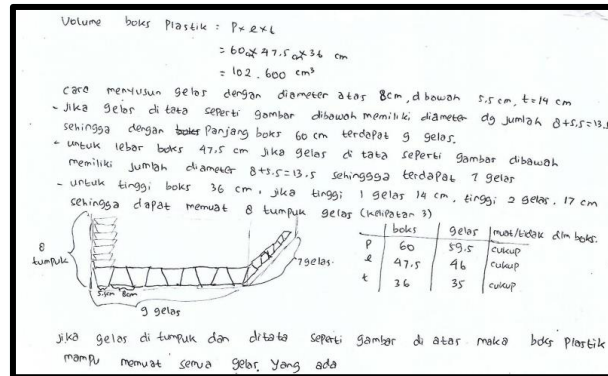 Volume boks Plastik : P x l x t
= 60 cm x 47,5 cm x 36 cm
= 102.600 cm³
cara menyusun gelas dengan diameter atas 8cm, d bawah 5.5 cm, t=14 cm
- Jika gelas di tata seperti gambar dibawah memiliki diameter dg jumlah 8+5,5=13,5
sehingga dengan boks Panjang boks 60 cm terdapat 9 gelas.
- untuk lebar boks 47,5 cm jika gelas di tata seperti gambar dibawah
memiliki jumlah diameter 8+5.5=13.5 sehingga terdapat 7 gelas
- untuk tinggi boks 36 cm, jika tinggi 1 gelas 14 cm, tinggi 2 gelas, 17 cm
sehingga dapat memuat 8 tumpuk gelas (kelipatan 3)
8
tumpuk
5.5cm 8cm
9 gelas
7 gelas.
boks gelas muat/tidak dlm boks.
P 60 59.5 cukup
l 47.5 46 cukup
t 36 35 cukup
jika gelas di tumpuk dan ditata seperti gambar di atas maka boks Plastik
mampu memuat semua gelas yang ada